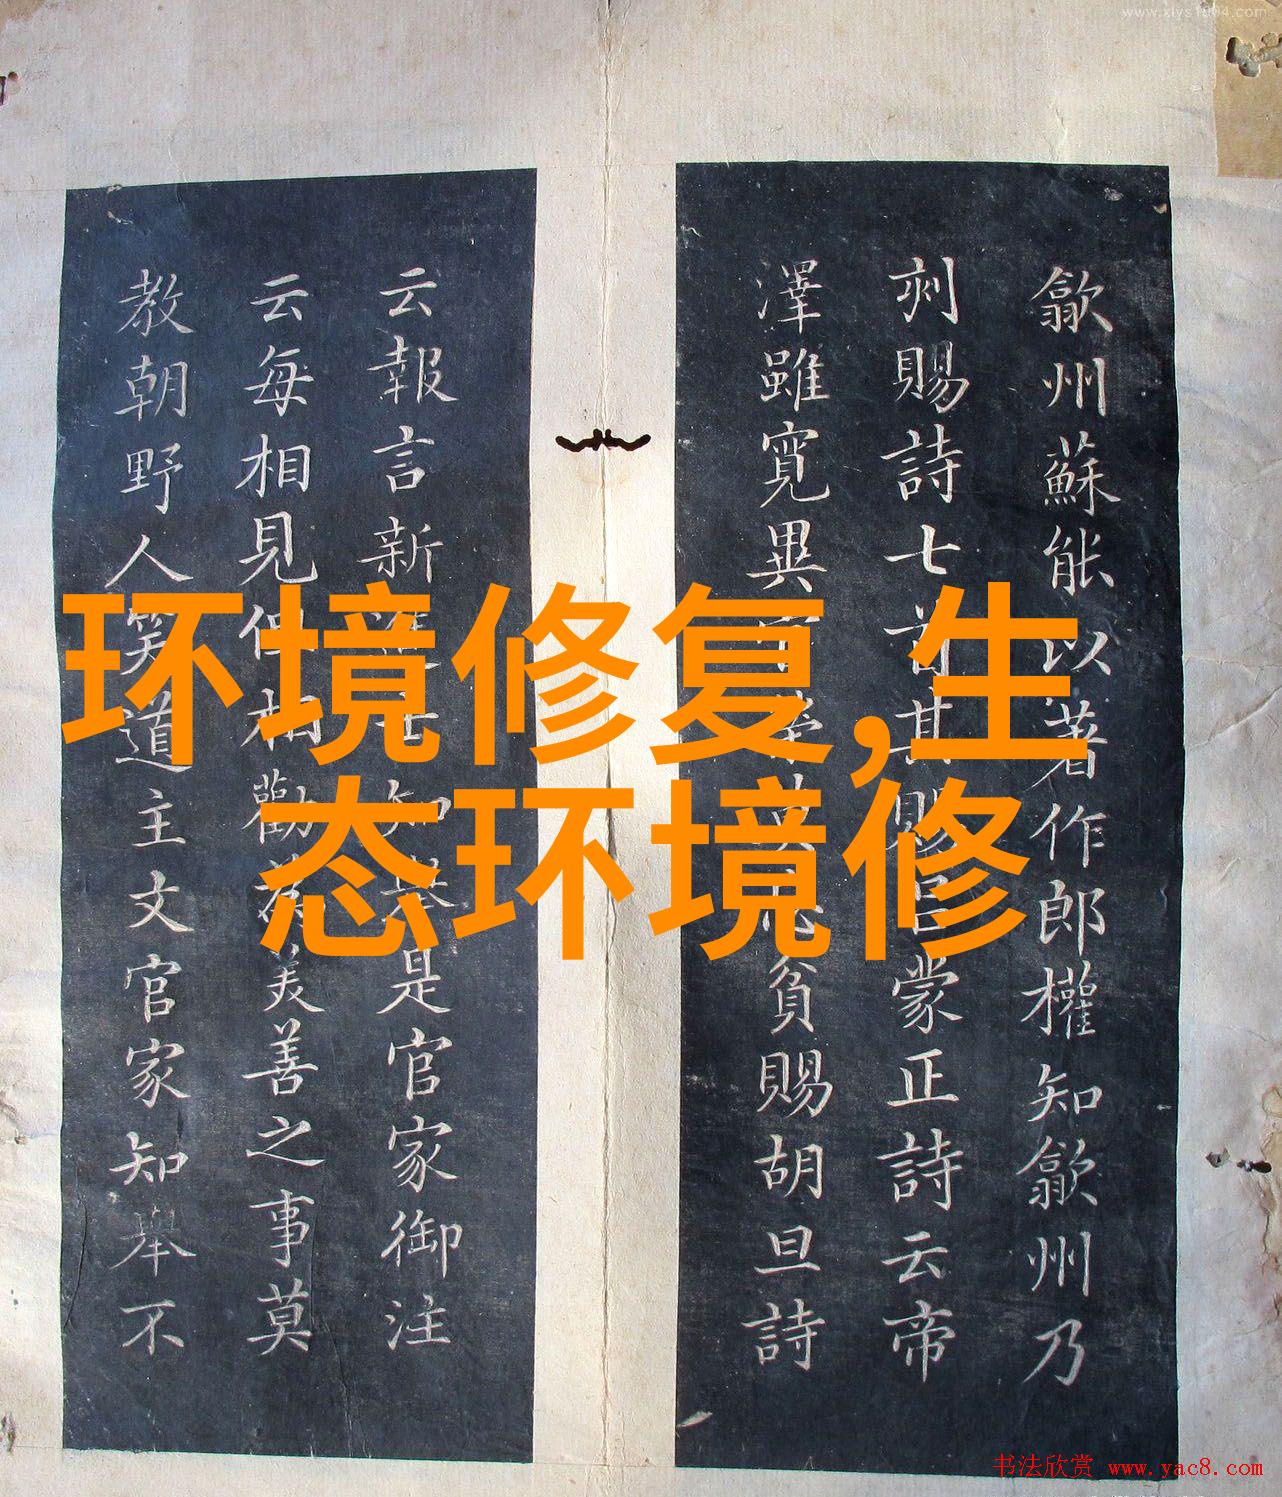 环境修复,生
态环境修
歙州蘇能以著作郎權知歙州乃
刺賜詩七首其賜臣蒙正詩云帝
澤雖寬異貧賜胡旦詩
云報言新進士知舉是官家御注
云每相見但相勸為美善之事莫
教朝野人笑道主文官家知舉不
书法欣赏 www.yac8.com